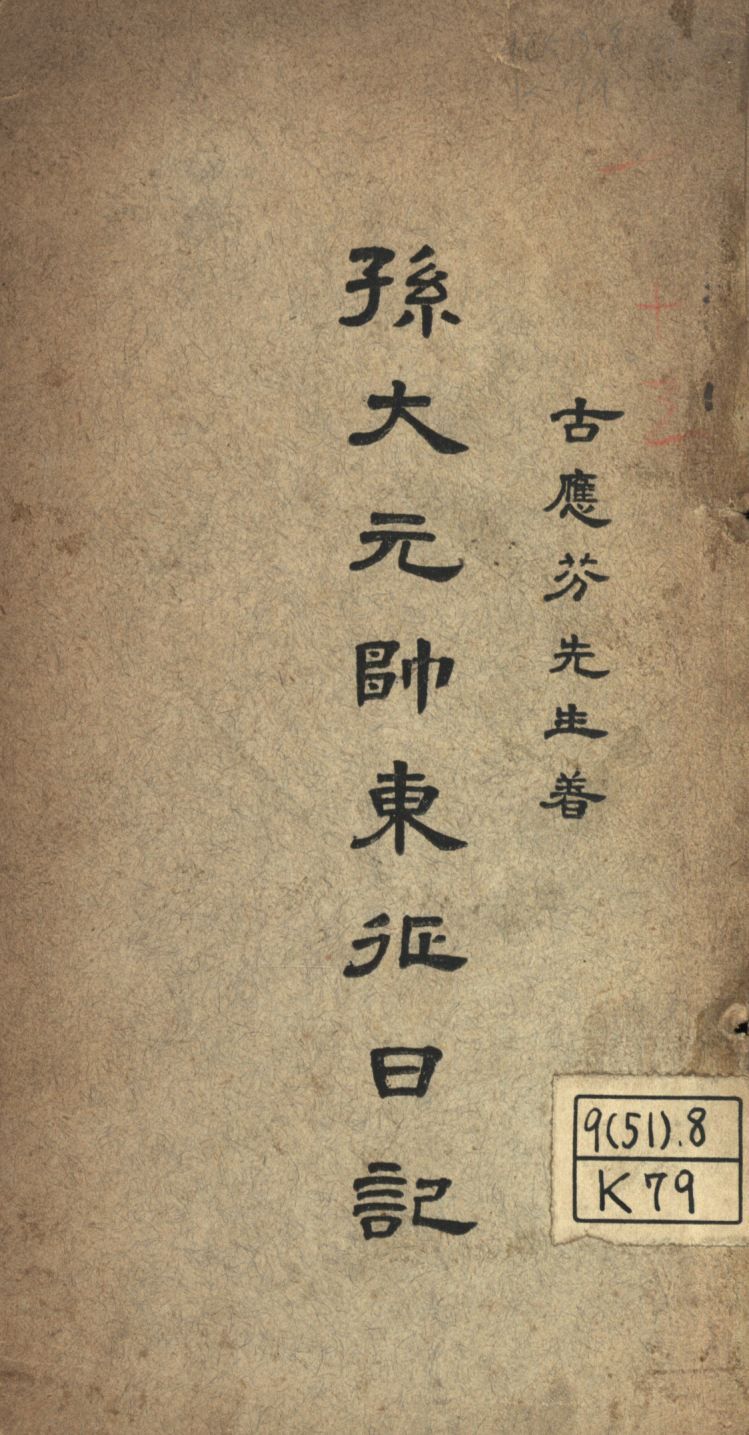 古應芬先生著
孫大元帥東征日記
9(51).8
K79